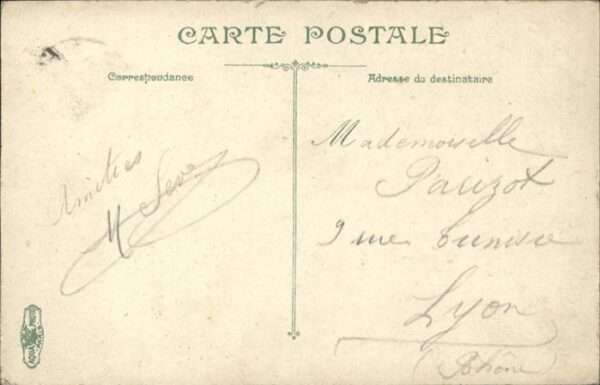 CARTE POSTALE
Correspondance
Adresse du destinataire
Amitiés
M Seve
Mademoiselle
Parizot
9 rue
Lyon
(Rhône)